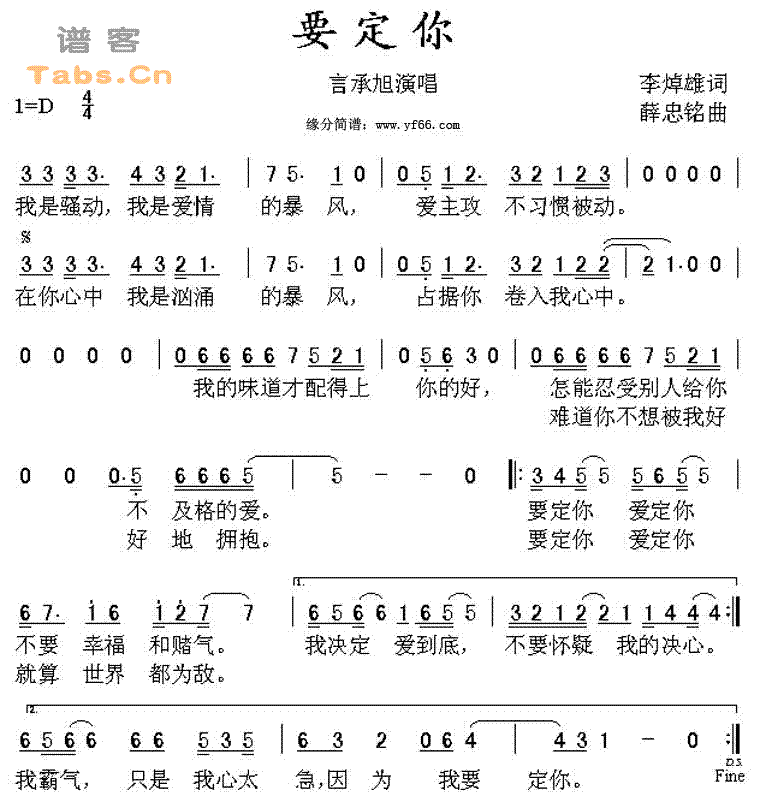 谱客
Tabs.Cn
要定你
言承旭演唱
李焯雄词
1=D 4/4
缘分简谱：www.yf66.com
薛忠铭曲
3 3 3 3· 4 3 2 1· | 7 5· 1 0 | 0 5 1 2· 3 2 1 2 3 | 0 0 0 0 |
我是骚动，我是爱情 的暴 风， 爱主攻 不习惯被动。
3 3 3 3· 4 3 2 1· | 7 5· 1 0 | 0 5 1 2· 3 2 1 2 2 | 2 1· 0 0 |
在你心中 我是汹涌 的暴 风， 占据你 卷入我心中。
0 0 0 0 | 0 6 6 6 6 7 5 2 1 | 0 5 6 3 0 | 0 6 6 6 6 7 5 2 1 |
我的味道才配得上 你的好， 怎能忍受别人给你
难道你不想被我好
0 0 0· 5 6 6 6 5 | 5 - - 0 ‖: 3 4 5 5 5 6 5 5 |
不 及格的爱。 要定你 爱定你
好 地 拥抱。 要定你 爱定你
1.
6 7· 1 6 1 2 7 7 7 | 6 5 6 6 1 6 5 5 | 3 2 1 2 2 1 1 4 4 4 :‖
不要 幸福 和赌气。 我决定 爱到底， 不要怀疑 我的决心。
就算 世界 都为敌。
2.
6 5 6 6 6 6 5 3 5 | 6 3 2 0 6 4 | 4 3 1 - 0 :‖
D.S.
我霸气， 只是 我心太 急，因 为 我要 定你。 Fine